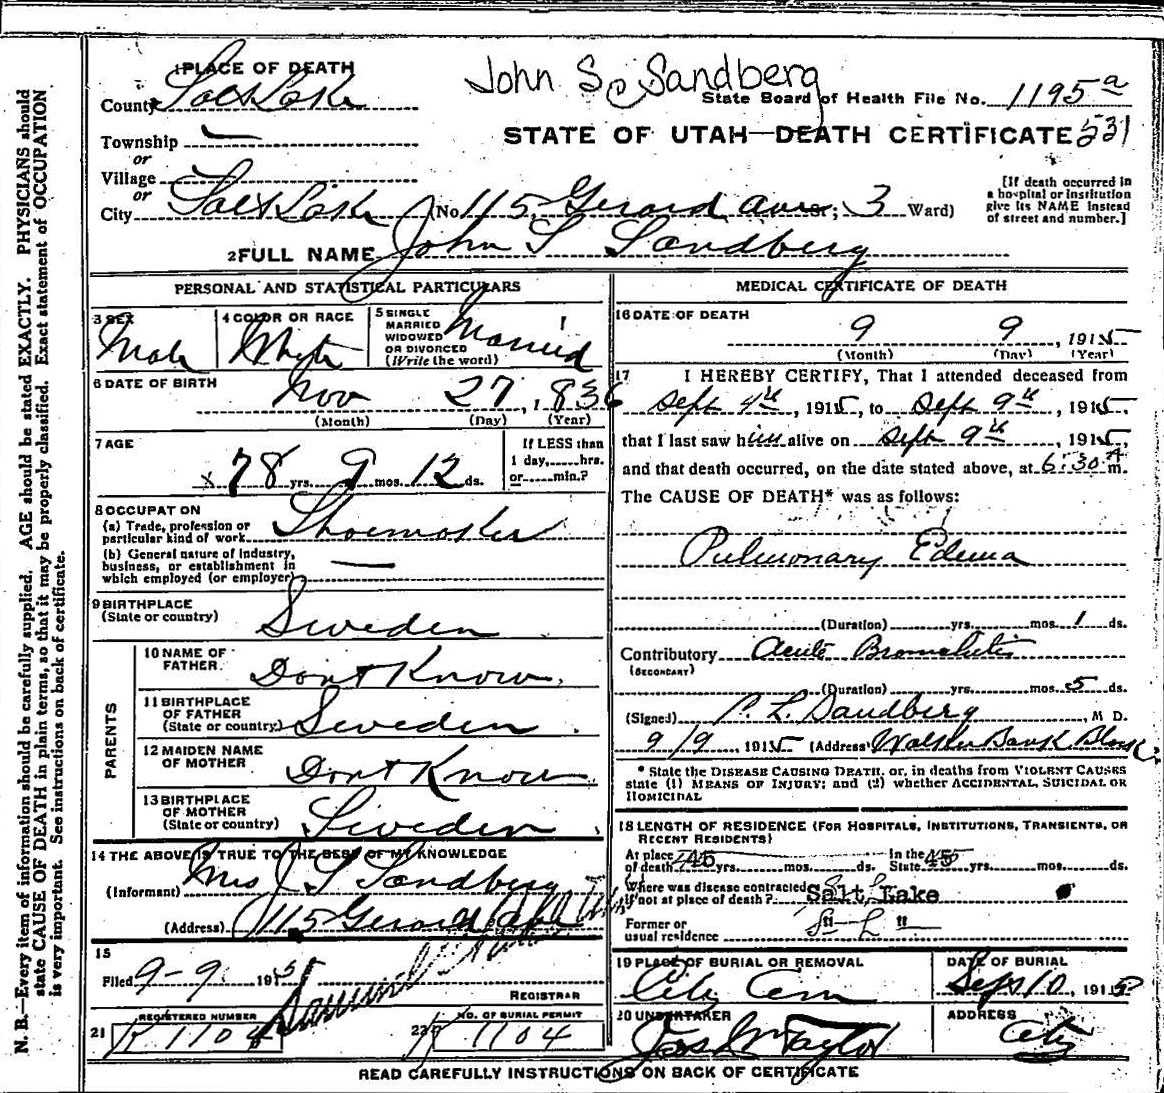 John S. Sandberg
1 PLACE OF DEATH
County Salt Lake
State Board of Health File No. 1195 a
Township —
STATE OF UTAH—DEATH CERTIFICATE 531
or
Village
or
City Salt Lake (No. 115, Gerard Ave St.; 3 Ward)
[If death occurred in
a hospital or institution
give its NAME instead
of street and number.]
2 FULL NAME John S Sandberg
PERSONAL AND STATISTICAL PARTICULARS
3 SEX
Male
4 COLOR OR RACE
White
5 SINGLE
MARRIED
WIDOWED
OR DIVORCED
(Write the word)
Married
6 DATE OF BIRTH
Nov 27, 1836
(Month) (Day) (Year)
7 AGE
78 yrs. 9 mos. 12 ds.
If LESS than
1 day,......hrs.
or......min.?
8 OCCUPATION
(a) Trade, profession or
particular kind of work Shoemaker
(b) General nature of industry,
business, or establishment in
which employed (or employer) —
9 BIRTHPLACE
(State or country) Sweden
PARENTS
10 NAME OF
FATHER Dont Know
11 BIRTHPLACE
OF FATHER
(State or country) Sweden
12 MAIDEN NAME
OF MOTHER Dont Know
13 BIRTHPLACE
OF MOTHER
(State or country) Sweden
14 THE ABOVE IS TRUE TO THE BEST OF MY KNOWLEDGE
(Informant) Mrs J S Sandberg
(Address) 115 Gerard
15
Filed 9-9 1915
REGISTRAR
REGISTERED NUMBER
21 R 1104
NO. OF BURIAL PERMIT
22 1104
MEDICAL CERTIFICATE OF DEATH
16 DATE OF DEATH
9 9, 1915
(Month) (Day) (Year)
17 I HEREBY CERTIFY, That I attended deceased from
Sept 4th, 1915, to Sept 9th, 1915,
that I last saw him alive on Sept 9th, 1915,
and that death occurred, on the date stated above, at 6:30 A m.
The CAUSE OF DEATH* was as follows:
Pulmonary Edema
(Duration) yrs. mos. 1 ds.
Contributory Acute Bronchitis
(SECONDARY)
(Duration) yrs. mos. 5 ds.
(Signed) C. L. Sandberg, M D.
9/9, 1915 (Address) Walker Bank Block
* State the DISEASE CAUSING DEATH, or, in deaths from VIOLENT CAUSES
state (1) MEANS OF INJURY; and (2) whether ACCIDENTAL, SUICIDAL OR
HOMICIDAL
18 LENGTH OF RESIDENCE (FOR HOSPITALS, INSTITUTIONS, TRANSIENTS, OR
RECENT RESIDENTS)
At place
of death 45 yrs. mos. ds.
In the
State 45 yrs. mos. ds.
Where was disease contracted
if not at place of death? Salt Lake
Former or
usual residence S L
19 PLACE OF BURIAL OR REMOVAL
City Cem
DATE OF BURIAL
Sept 10, 1915
20 UNDERTAKER
Jos Wm Taylor
ADDRESS
City
READ CAREFULLY INSTRUCTIONS ON BACK OF CERTIFICATE
N. B.—Every item of information should be carefully supplied. AGE should be stated EXACTLY. PHYSICIANS should
state CAUSE OF DEATH in plain terms, so that it may be properly classified. Exact statement of OCCUPATION
is very important. See instructions on back of certificate.